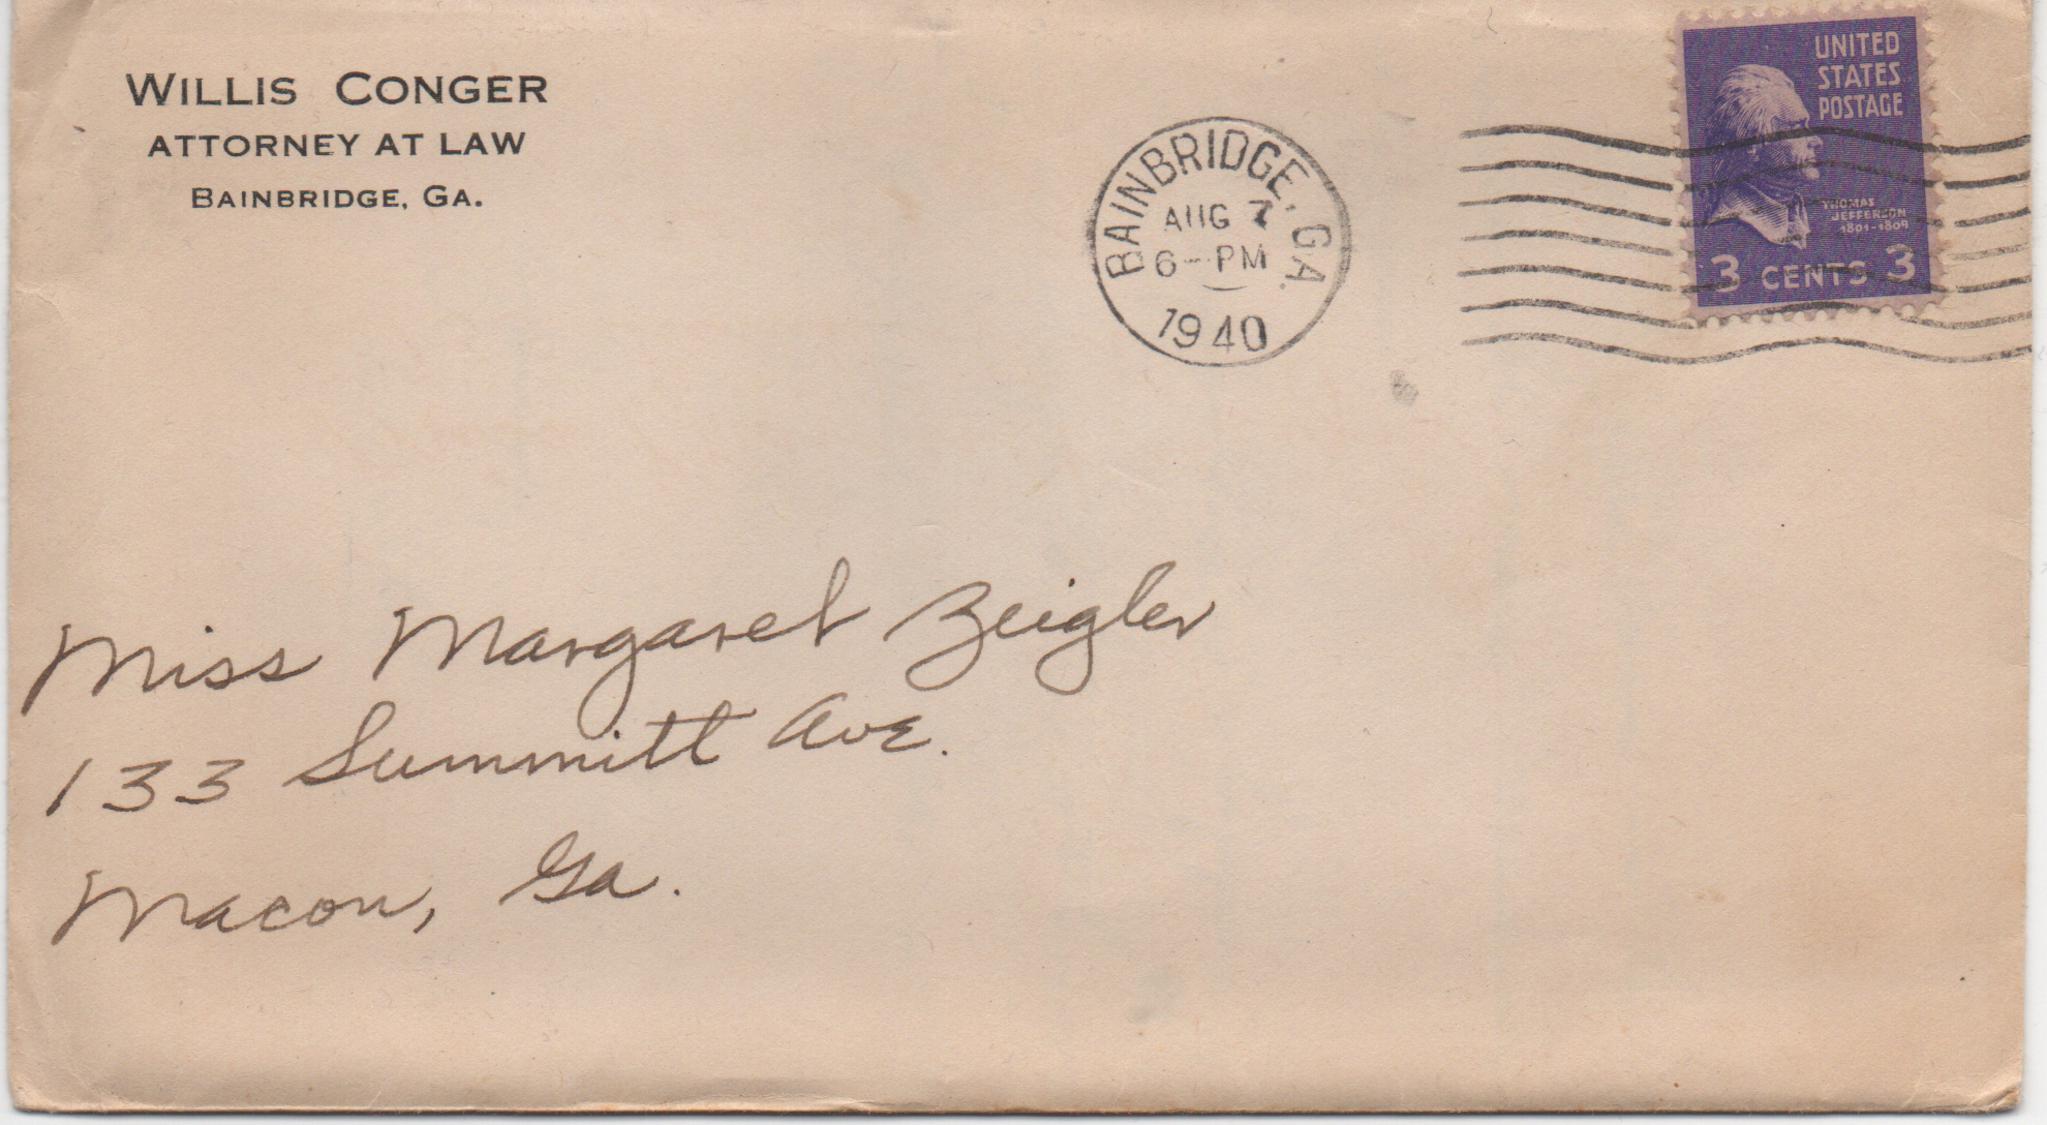 WILLIS CONGER
ATTORNEY AT LAW
BAINBRIDGE, GA.
BAINBRIDGE, GA.
AUG 7
6-PM
1940
UNITED
STATES
POSTAGE
THOMAS
JEFFERSON
1801-1809
3 CENTS 3
Miss Margaret Zeigler
133 Summitt Ave.
Macon, Ga.